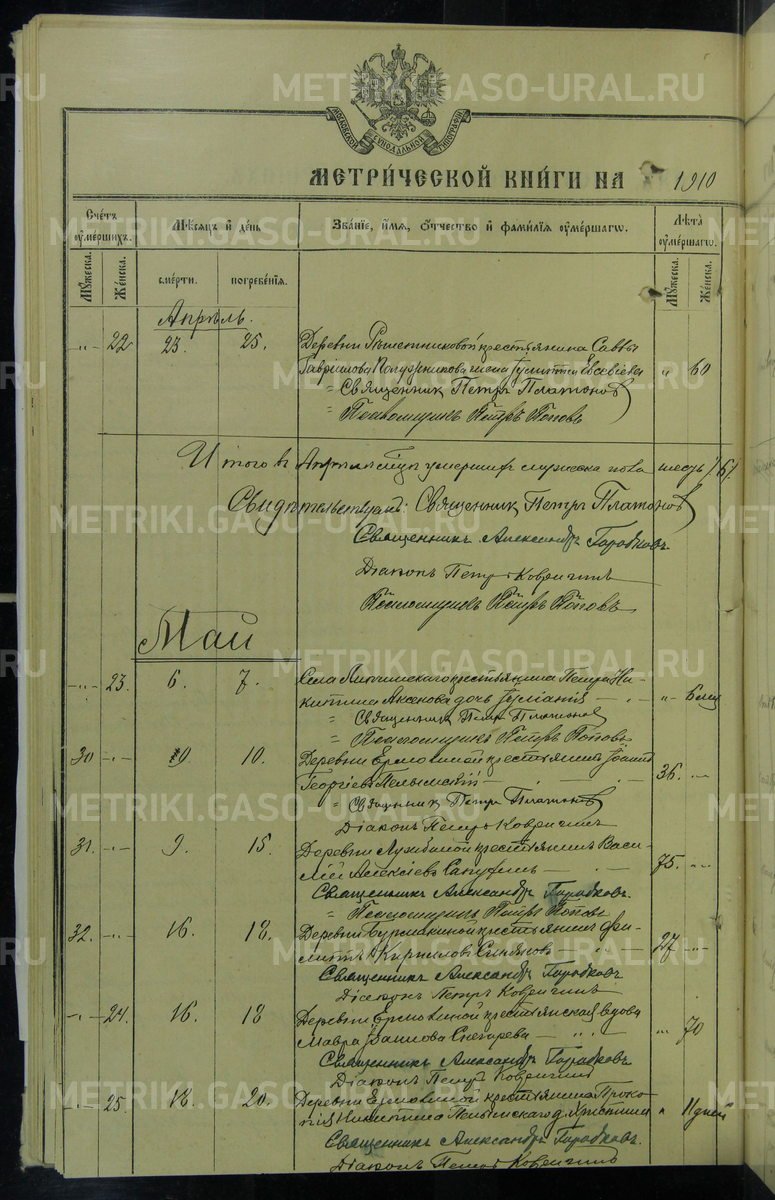 МОСКОВСКОЙ СѴНОДАЛЬНОЙ ТИПОГРАФІИ
МЕТРИ́ЧЕСКОЙ КНИ́ГИ НА 1910
Счетъ ᲂумершихъ. Мѣсяцъ и день Званїе, имя, ѻтчество и фамилїя ᲂумершагѡ. Лѣта ᲂумершагѡ.
Мужеска. Женска. смерти. погребенїя. Мужеска. Женска.
Апрѣль.
-"- 22 23. 25. Деревни Рѣшетниковой крестьянина Саввы
Гавріилова жена Евсевіева " 60
= Священникъ Петръ Платоновъ
= Псаломщикъ Петръ Поповъ
Итого въ Апрѣлѣ мцѣ умерших мужеска пола шесть /6/.
Свидѣтельствуемъ: Священник Петръ Платоновъ
Священникъ Александръ Городковъ
Діаконъ Петръ Ковригинъ
Псаломщикъ Петръ Поповъ
Май
-"- 23. 6. 7. Села крестьянина Петра Ни-
китина Аксенова дочь Іуліанія -"- 6 мѣс
= Священник Петръ Платоновъ
= Псаломщикъ Петръ Поповъ
30 -"- 10. Деревни Ермолиной крестьянинъ Іоаннъ
Георгіевъ Пелымскій 36. -"-
= Священник Петръ Платоновъ
Діаконъ Петръ Ковригинъ
31. -"- 9. 15. Деревни крестьянинъ Васи-
лій Алексіевъ 75. -"-
Священникъ Александръ Городковъ.
= Псаломщикъ Петръ Поповъ
32. -"- 16. 18. Деревни крестьянинъ Фи-
липпъ Кириловъ 27 -"-
Священникъ Александръ Городковъ
Діаконъ Петръ Ковригинъ
-"- 24. 16. 18 Деревни Ермолиной крестьянская вдова
Мавра Снегирева -"- 70
Священникъ Александръ Городковъ
Діаконъ Петръ Ковригинъ
-"- 25. 18. 20. Деревни Ермолиной крестьянина Проко-
пія Никитина Пелымскаго д. " 11 дней
Священникъ Александръ Городковъ.
Діаконъ Петръ Ковригинъ
METRIKI.GASO-URAL.RU